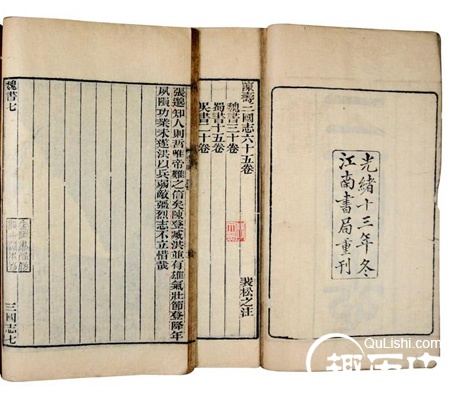 光緒十三年冬
江南書局重刊
陳壽三國志六十五卷
魏書三十卷
蜀書十五卷
吳書二十卷
裴松之注
張邈知人則哲唯帝難之信矣陳登臧洪並有雄氣壯節登降年
夙隕功業未遂洪以兵弱敵彊烈志不立惜哉
魏書七
三國志七
QuLishi.com
趣历史